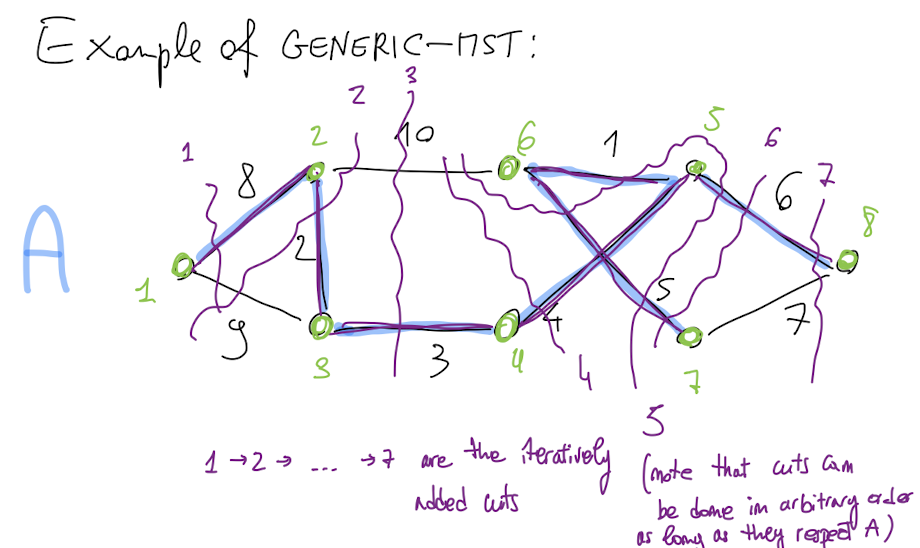 Example of GENERIC-MST:
3
2
10
5
2
6
1
6
1
8
7
6
8
A
2
5
1
9
4
7
3
3
4
4
7
5
1 → 2 → ... → 7 are the iteratively
added cuts
(note that cuts can
be done in arbitrary order
as long as they respect A)